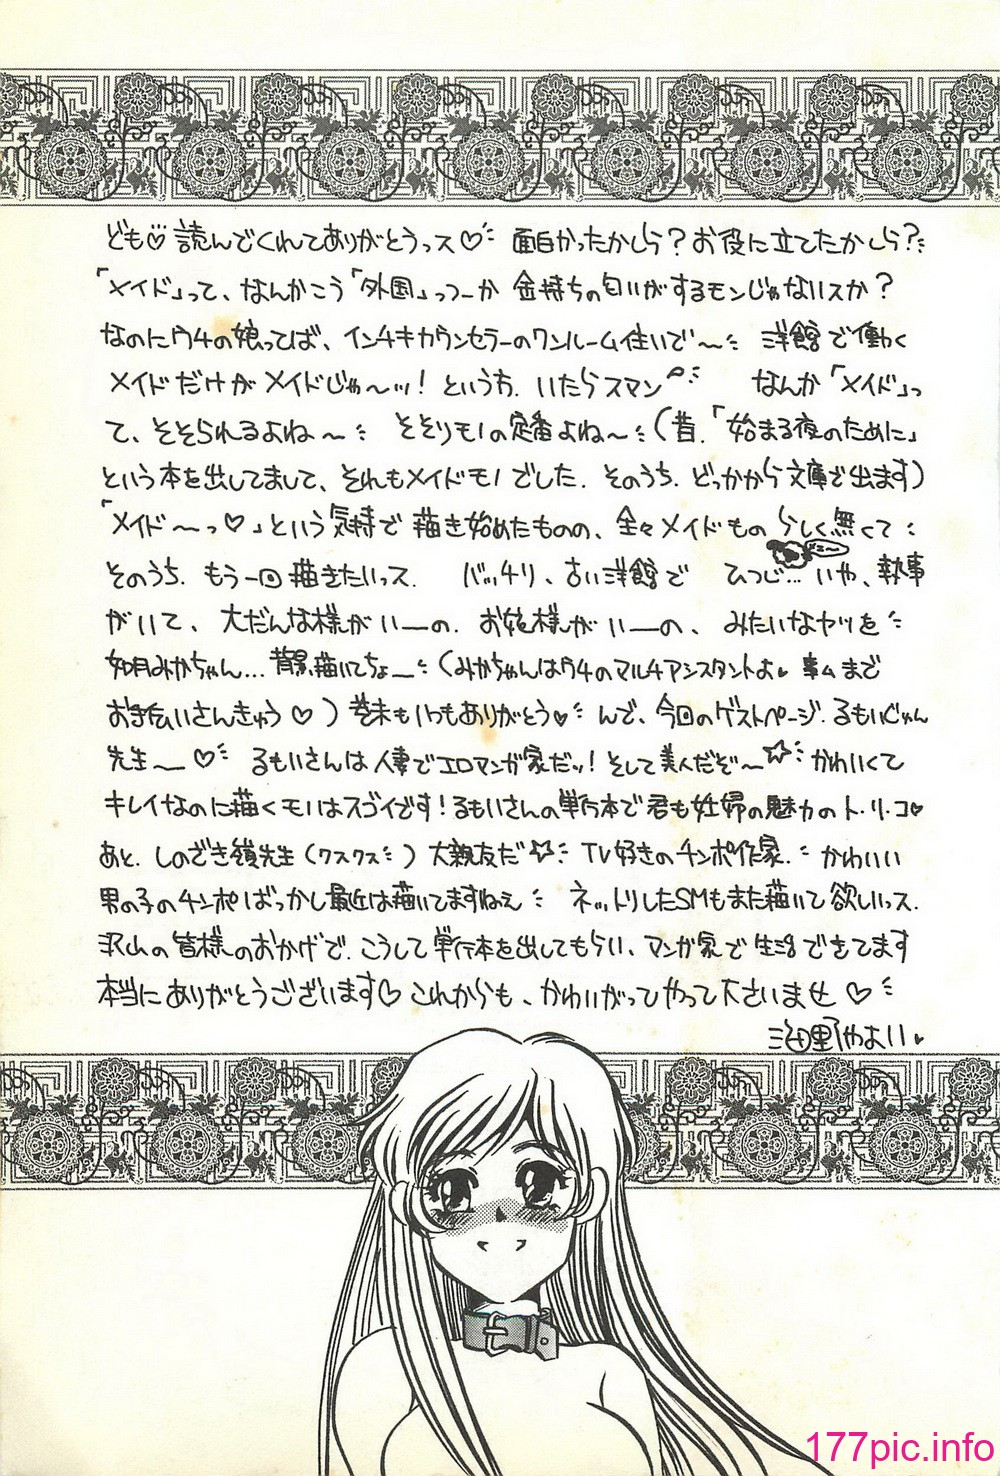 ども♡ 読んでくれてありがとうっス♡ 面白かったかしら？お役に立てたかしら？
「メイド」って、なんかこう「外国」っつーか 金持ちの匂いがするモンじゃないスか？
なのにウチの娘ってば、インチキカウンセラーのワンルーム住いで〜 洋館で働く
メイドだけがメイドじゃ〜ッ！というわ、いたらスマン なんか「メイド」っ
て、そそられるよね〜 そそりモノの定番よね〜（昔、「始まる夜のために」
という本を出してまして、それもメイドモノでした. そのうち、どっかから文庫で出ます）
「メイド〜っ♡」という気持で描き始めたものの、全々メイドものらしく無くて
そのうち、もう一回描きたいっス. バッチリ、古い洋館で ひつじ…いや、執事
がいて、大だんな様がいーの、お嬢様がいーの、みたいなヤツを
如月みかちゃん…背景描いてちょー（みかちゃんはウチのマルチアシスタントよ♥ 事ムまで
お手伝いさんきゅう♡）巻末もいつもありがとう♥ んで、今回のゲストページ、るもいじゅん
先生〜♡ るもいさんは人妻でエロマンガ家だッ！そして美人だぞ〜☆ かわいくて
キレイなのに描くモノはスゴイです！るもいさんの単行本で君も妊婦の魅力のト・リ・コ♥
あと、しのざき嶺先生（クスクス）大親友だ☆ TV好きのチンポ作家. かわいい
男の子のチンポばっかし最近は描いてますねえ ネットリしたSMもまた描いて欲しいっス.
沢山の皆様のおかげで、こうして単行本を出してもらい、マンガ家で生活できてます
本当にありがとうございます♡ これからも、かわいがってやって下さいませ♡
海野やよい♥
177pic.info